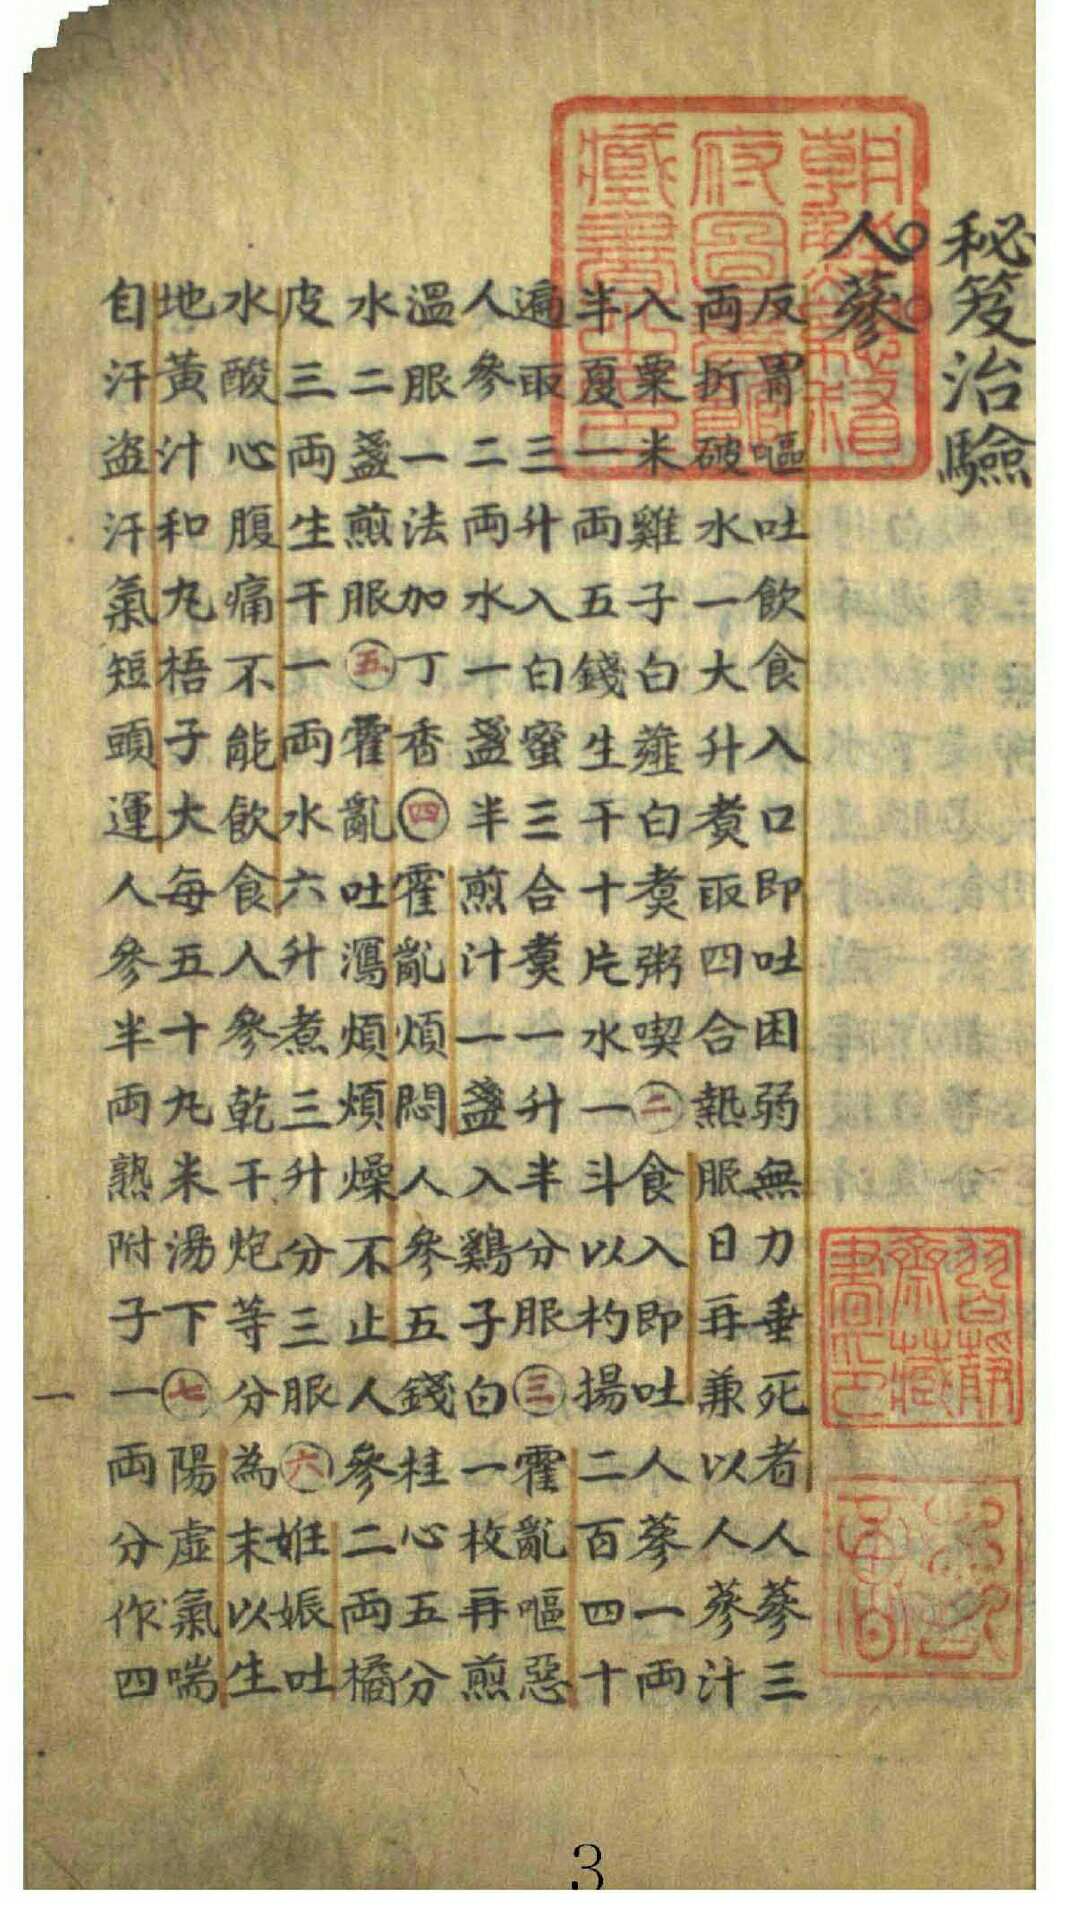 秘笈治驗
人蔘
反胃嘔吐飲食入口即吐困弱無力垂死者人蔘三
両折破水一大升煑取四合熱服日再兼以人蔘汁
入粟米雞子白薤白煑粥喫二食入即吐人蔘一両
半夏一両五錢生干十片水一斗以杓揚二百四十
遍取三升入白蜜三合煑一升半分服三霍亂嘔惡
人參二両水一盞半煎汁一盞入鷄子白一枚再煎
溫服一法加丁香四霍亂煩悶人參五錢桂心五分
水二盞煎服五霍亂吐瀉煩煩燥不止人參二両橘
皮三両生干一両水六升煮三升分三服六妊娠吐
水酸心腹痛不能飲食人參乾干炮等分為末以生
地黃汁和丸梧子大每五十丸米湯下七陽虛氣喘
自汗盗汗氣短頭運人參半両熟附子一両分作四
一
朝鮮總督
府圖書館
藏書之印
習靜
齋藏
書印
3